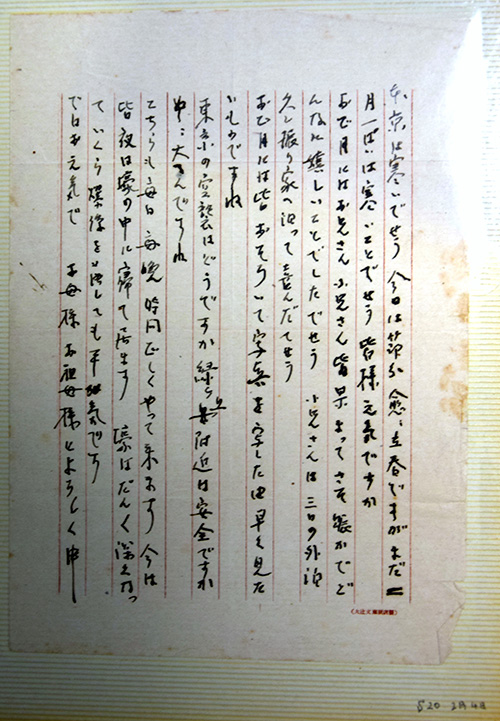 東京は寒いでせう 今日は節分 愈々立春ですがまだ二
月一ぱいは寒いことでせう 皆様元気ですか
お正月にはお兄さん 小兄さん 皆 よって さぞ賑かでど
んなに嬉しいことでしたでせう 小兄さんは三日の外泊
久し振り家へ泊って喜んだでせう
お正月には皆おそろいで写真を写した由 早く見た
いものですね
東京の空襲はどうですか 緑ヶ丘附近は安全ですか
中々大へんですね
こちらも毎日毎晩 時間正しくやって来ます 今は
皆夜は壕の中に寝て居ます 壕はだんだん深くなっ
ていくら爆弾を落しても平気です
ではお元気で お母様 お祖母様によろしく 申
S20 2月4日